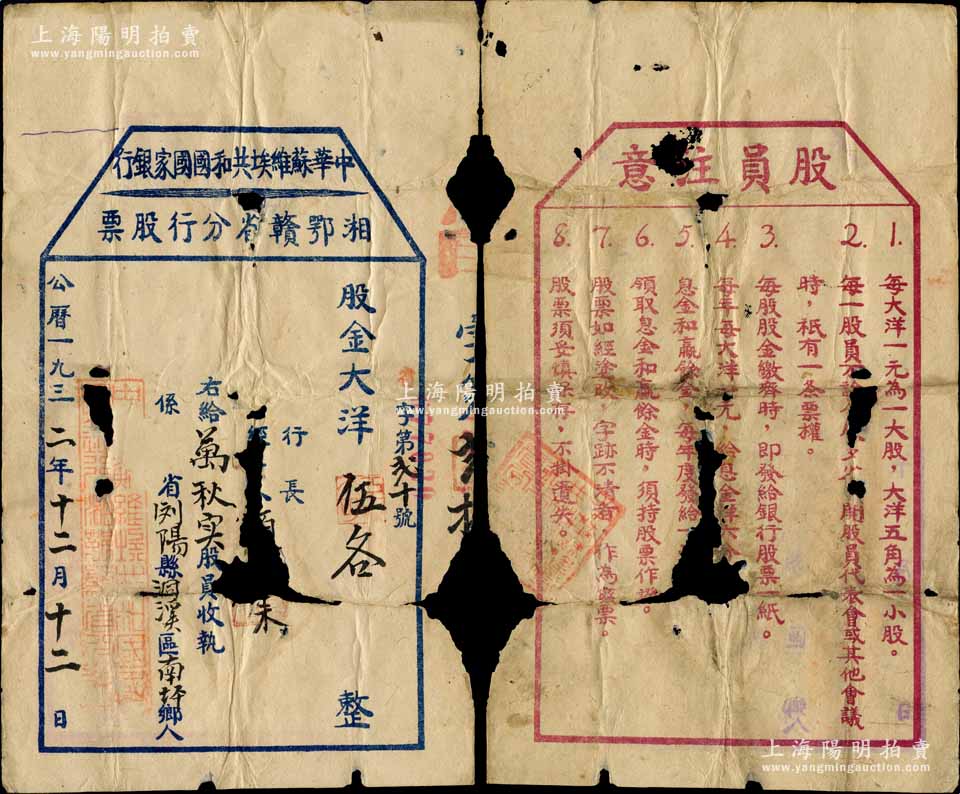 上海陽明拍賣
www.yangmingauction.com
上海陽明拍賣
www.yangmingauction.com
股員注意
1. 每大洋一元為一大股，大洋五角為一小股。
2. 每一股員不論 多少，開股員代表會或其他會議
時，祇有一条票權。
3. 每股股金繳齊時，即發給銀行股票一紙。
4. 每年每大洋 元，給息金洋六
5. 息金和贏餘金，每年度發給一
6. 領取息金和贏餘金時，須持股票作
7. 股票如經塗改，字跡不清者 作為廢票。
8. 股票須妥慎保 ，不掛遺失。
中華蘇維埃共和國國家銀行
湘鄂贛省分行股票
字第弍十號
股金大洋 伍各 整
行長
朱
右給萬秋实股員收執
係 省浏陽縣洞溪區南坪鄉人
公曆一九三二年十二月十二日
上海陽明拍賣
www.yangmingauction.com
上海陽明拍賣
www.yangmingauction.com
上海陽明拍賣
www.yangmingauction.com